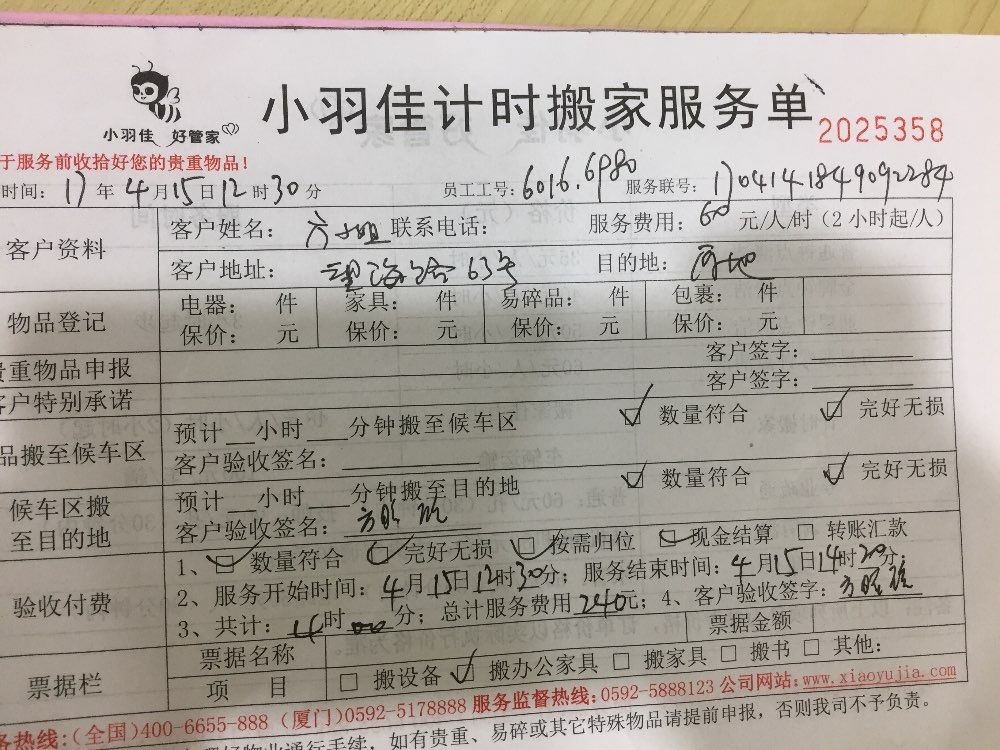 小羽佳 好管家
小羽佳计时搬家服务单
2025358
于服务前收拾好您的贵重物品!
时间: 17年4月15日12时30分 员工工号: 6016.6980 服务联号: 1704141849092284
客户资料
客户姓名: 方小姐 联系电话: 服务费用: 60 元/人/时 (2小时起/人)
客户地址: 望海路63号 目的地: 两地
物品登记
电器: 件 家具: 件 易碎品: 件 包裹: 件
保价: 元 保价: 元 保价: 元 保价: 元
贵重物品申报 客户签字:
客户特别承诺 客户签字:
品搬至候车区
预计__小时___分钟搬至候车区 数量符合 完好无损
客户验收签名:
候车区搬
至目的地
预计__小时___分钟搬至目的地 数量符合 完好无损
客户验收签名:
验收付费
1、数量符合 完好无损 按需归位 现金结算 转账汇款
2、服务开始时间: 4月15日12时30分; 服务结束时间: 4月15日14时20分;
3、共计: 4时00分; 总计服务费用240元; 4、客户验收签字:
票据栏
票据名称 票据金额
项 目 搬设备 搬办公家具 搬家具 搬书 其他:
务热线:(全国)400-6655-888 (厦门)0592-5178888 服务监督热线:0592-5888123 公司网站:www.xiaoyujia.com
好物业通行手续,如有贵重、易碎或其它特殊物品请提前申报,否则我司不予负责。